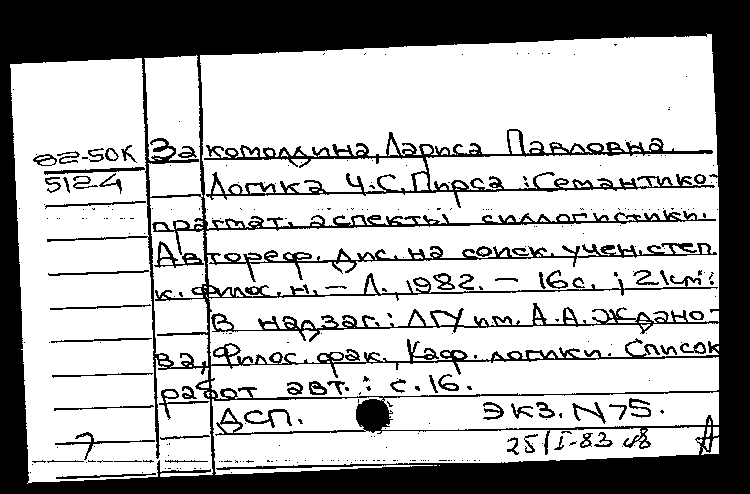 82-50К Закомолдина, Лариса Павловна.
512-4 Логика Ч.С. Пирса : Семантико-
прагмат. аспекты силлогистики.
Автореф. дис. на соиск. учен. степ.
к. филос. н. – Л., 1982. – 16 с. ; 21 см.
В надзаг.: ЛГУ им. А.А. Ждано-
ва, Филос. фак., Каф. логики. Список
работ авт. : с. 16.
ДСП. Экз. N 75.
25/I-83